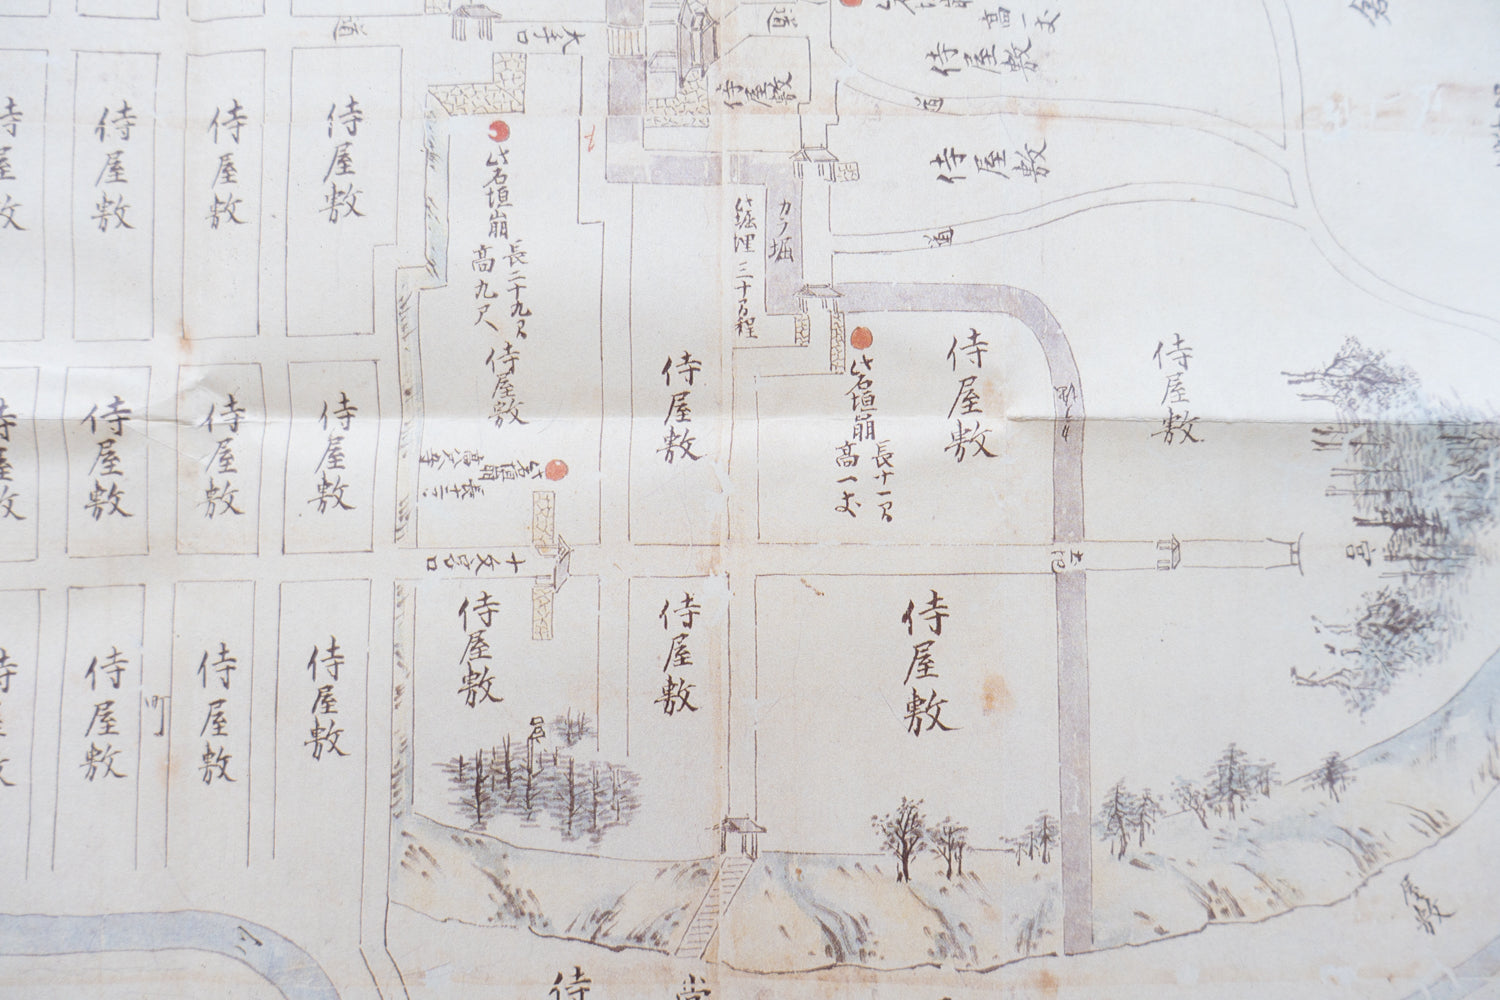 道
大手口
道
侍屋敷
侍屋敷
道
侍屋敷
侍屋敷
侍屋敷
侍屋敷
侍屋敷
此石垣崩
長二十九間
高九尺
侍屋敷
カラ堀
此堀埋
三十間程
道
侍屋敷
此石垣崩
長十一間
高一丈
侍屋敷
侍屋敷
侍屋敷
侍屋敷
侍屋敷
侍屋敷
此石垣崩
宮
侍屋敷
侍屋敷
侍屋敷
侍屋敷
侍屋敷
侍屋敷
侍屋敷
町
宮
川
屋敷
侍